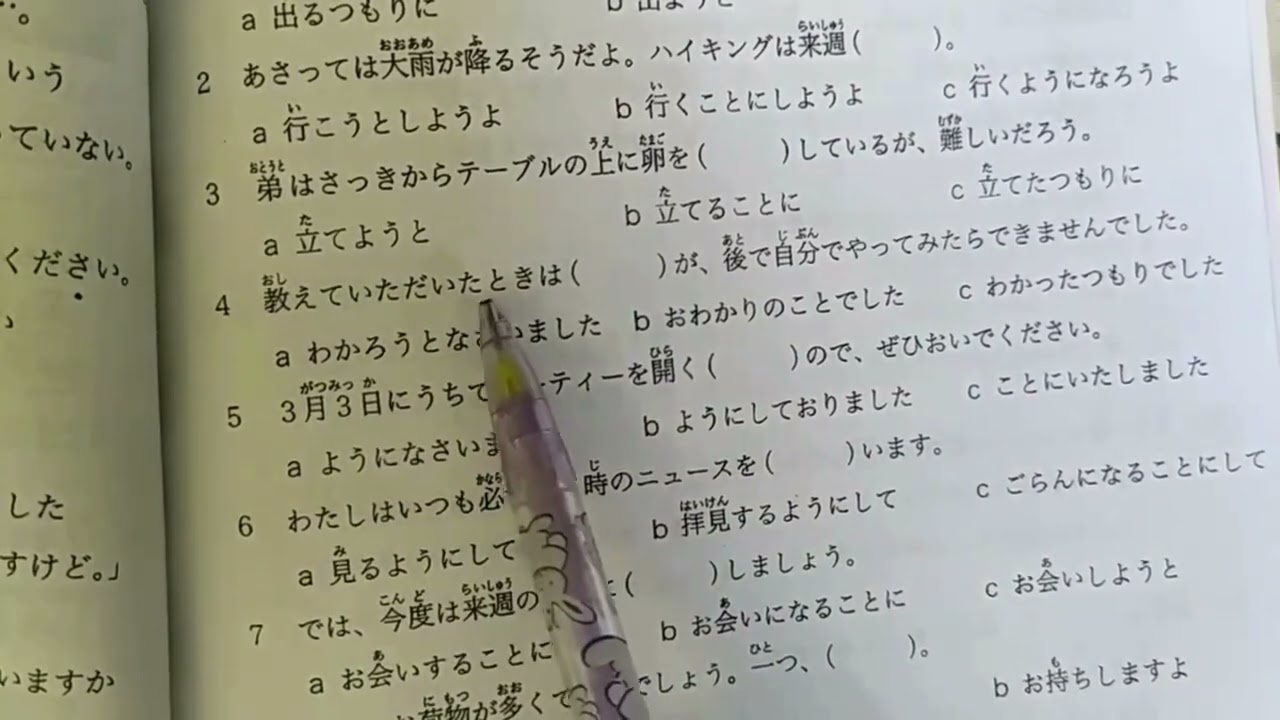 いう
ていない。
ください。
した
すけど。」
いますか
a 出るつもりに
2 あさっては大雨が降るそうだよ。ハイキングは来週( )。
a 行こうとしようよ b 行くことにしようよ c 行くようになろうよ
3 弟はさっきからテーブルの上に卵を( )しているが、難しいだろう。
a 立てようと b 立てることに c 立てたつもりに
4 教えていただいたときは( )が、後で自分でやってみたらできませんでした。
a わかろうとな いました b おわかりのことでした c わかったつもりでした
5 3月3日にうちで ーティーを開く( )ので、ぜひおいでください。
a ようになさいま b ようにしておりました c ことにいたしました
6 わたしはいつも必 時のニュースを( )います。
a 見るようにして b 拝見するようにして c ごらんになることにして
7 では、今度は来週の ( )しましょう。
a お会いすることに b お会いになることに c お会いしようと
荷物が多くて でしょう。一つ、( )。
b お持ちしますよ